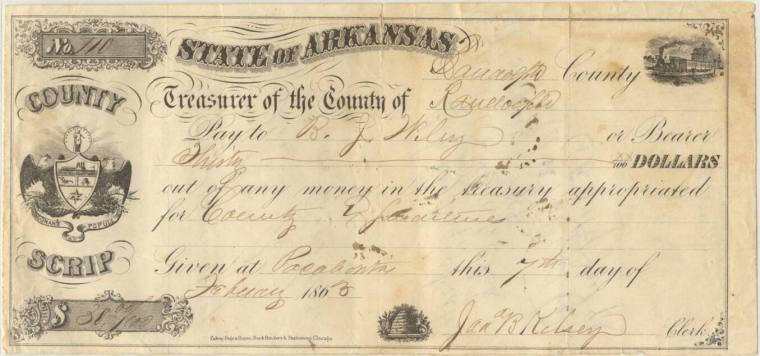 No. 110
STATE OF ARKANSAS
Randolph County
COUNTY
Treasurer of the County of Randolph
Pay to B. J. Wiley or Bearer
Thirty /100 DOLLARS
out of any money in the treasury appropriated
for County
SCRIP
Given at Pocahontas this 7th day of
February 186
$ 30 /100
Jas B Kelsey Clerk